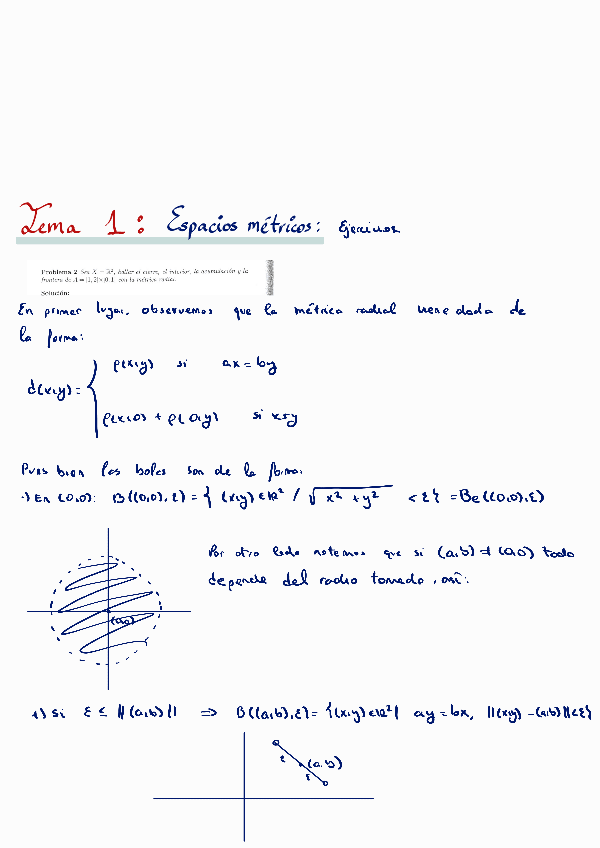 Tema 1: Espacios métricos: Ejercicios
Problema 2 Sea X = ℝ², hallar el cierre, el interior, la acumulación y la
frontera de A = [1, 2]× con la métrica radial.
Solución:
En primer lugar, observemos que la métrica radial viene dada de
la forma:
d(x,y) = { ρ(x,y) si ax = by
ρ(x,0) + ρ(0,y) si x≠y
Pues bien las bolas son de la forma:
·) En (0,0): B((0,0), ε) = { (x,y) ∈ ℝ² / √x² + y² < ε} = Be((0,0), ε)
Por otro lado notemos que si (a,b) ≠ (0,0) todo
depende del radio tomado, así:
(0,0)
1) Si ε ≤ ||(a,b)|| ⇒ B((a,b), ε) = {(x,y) ∈ ℝ² | ay = bx, ||(x,y) - (a,b)|| < ε}
ε (a,b)
ε